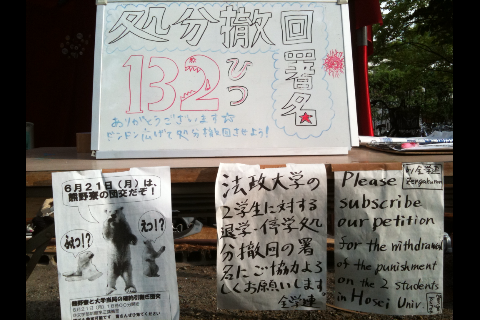 処分撤回
署名
132ひつ
ありがとうございます
ビンドン広げて処分撤回させよう!
6月21日(月)は、
熊野寮の団交だぞ!
ぬっ!?
えっ!?
熊野寮と大学当局の確約引継ぎ団交
法政大学の
2学生に対する
退学・停学処
分撤回の署
名にご協力よろ
しくお願いします。
全学連
by 全学連
Zengakuren
Please
subscribe
our petition
for the withdrawal
of the punishment
on the 2 students
in Hosei Univ.